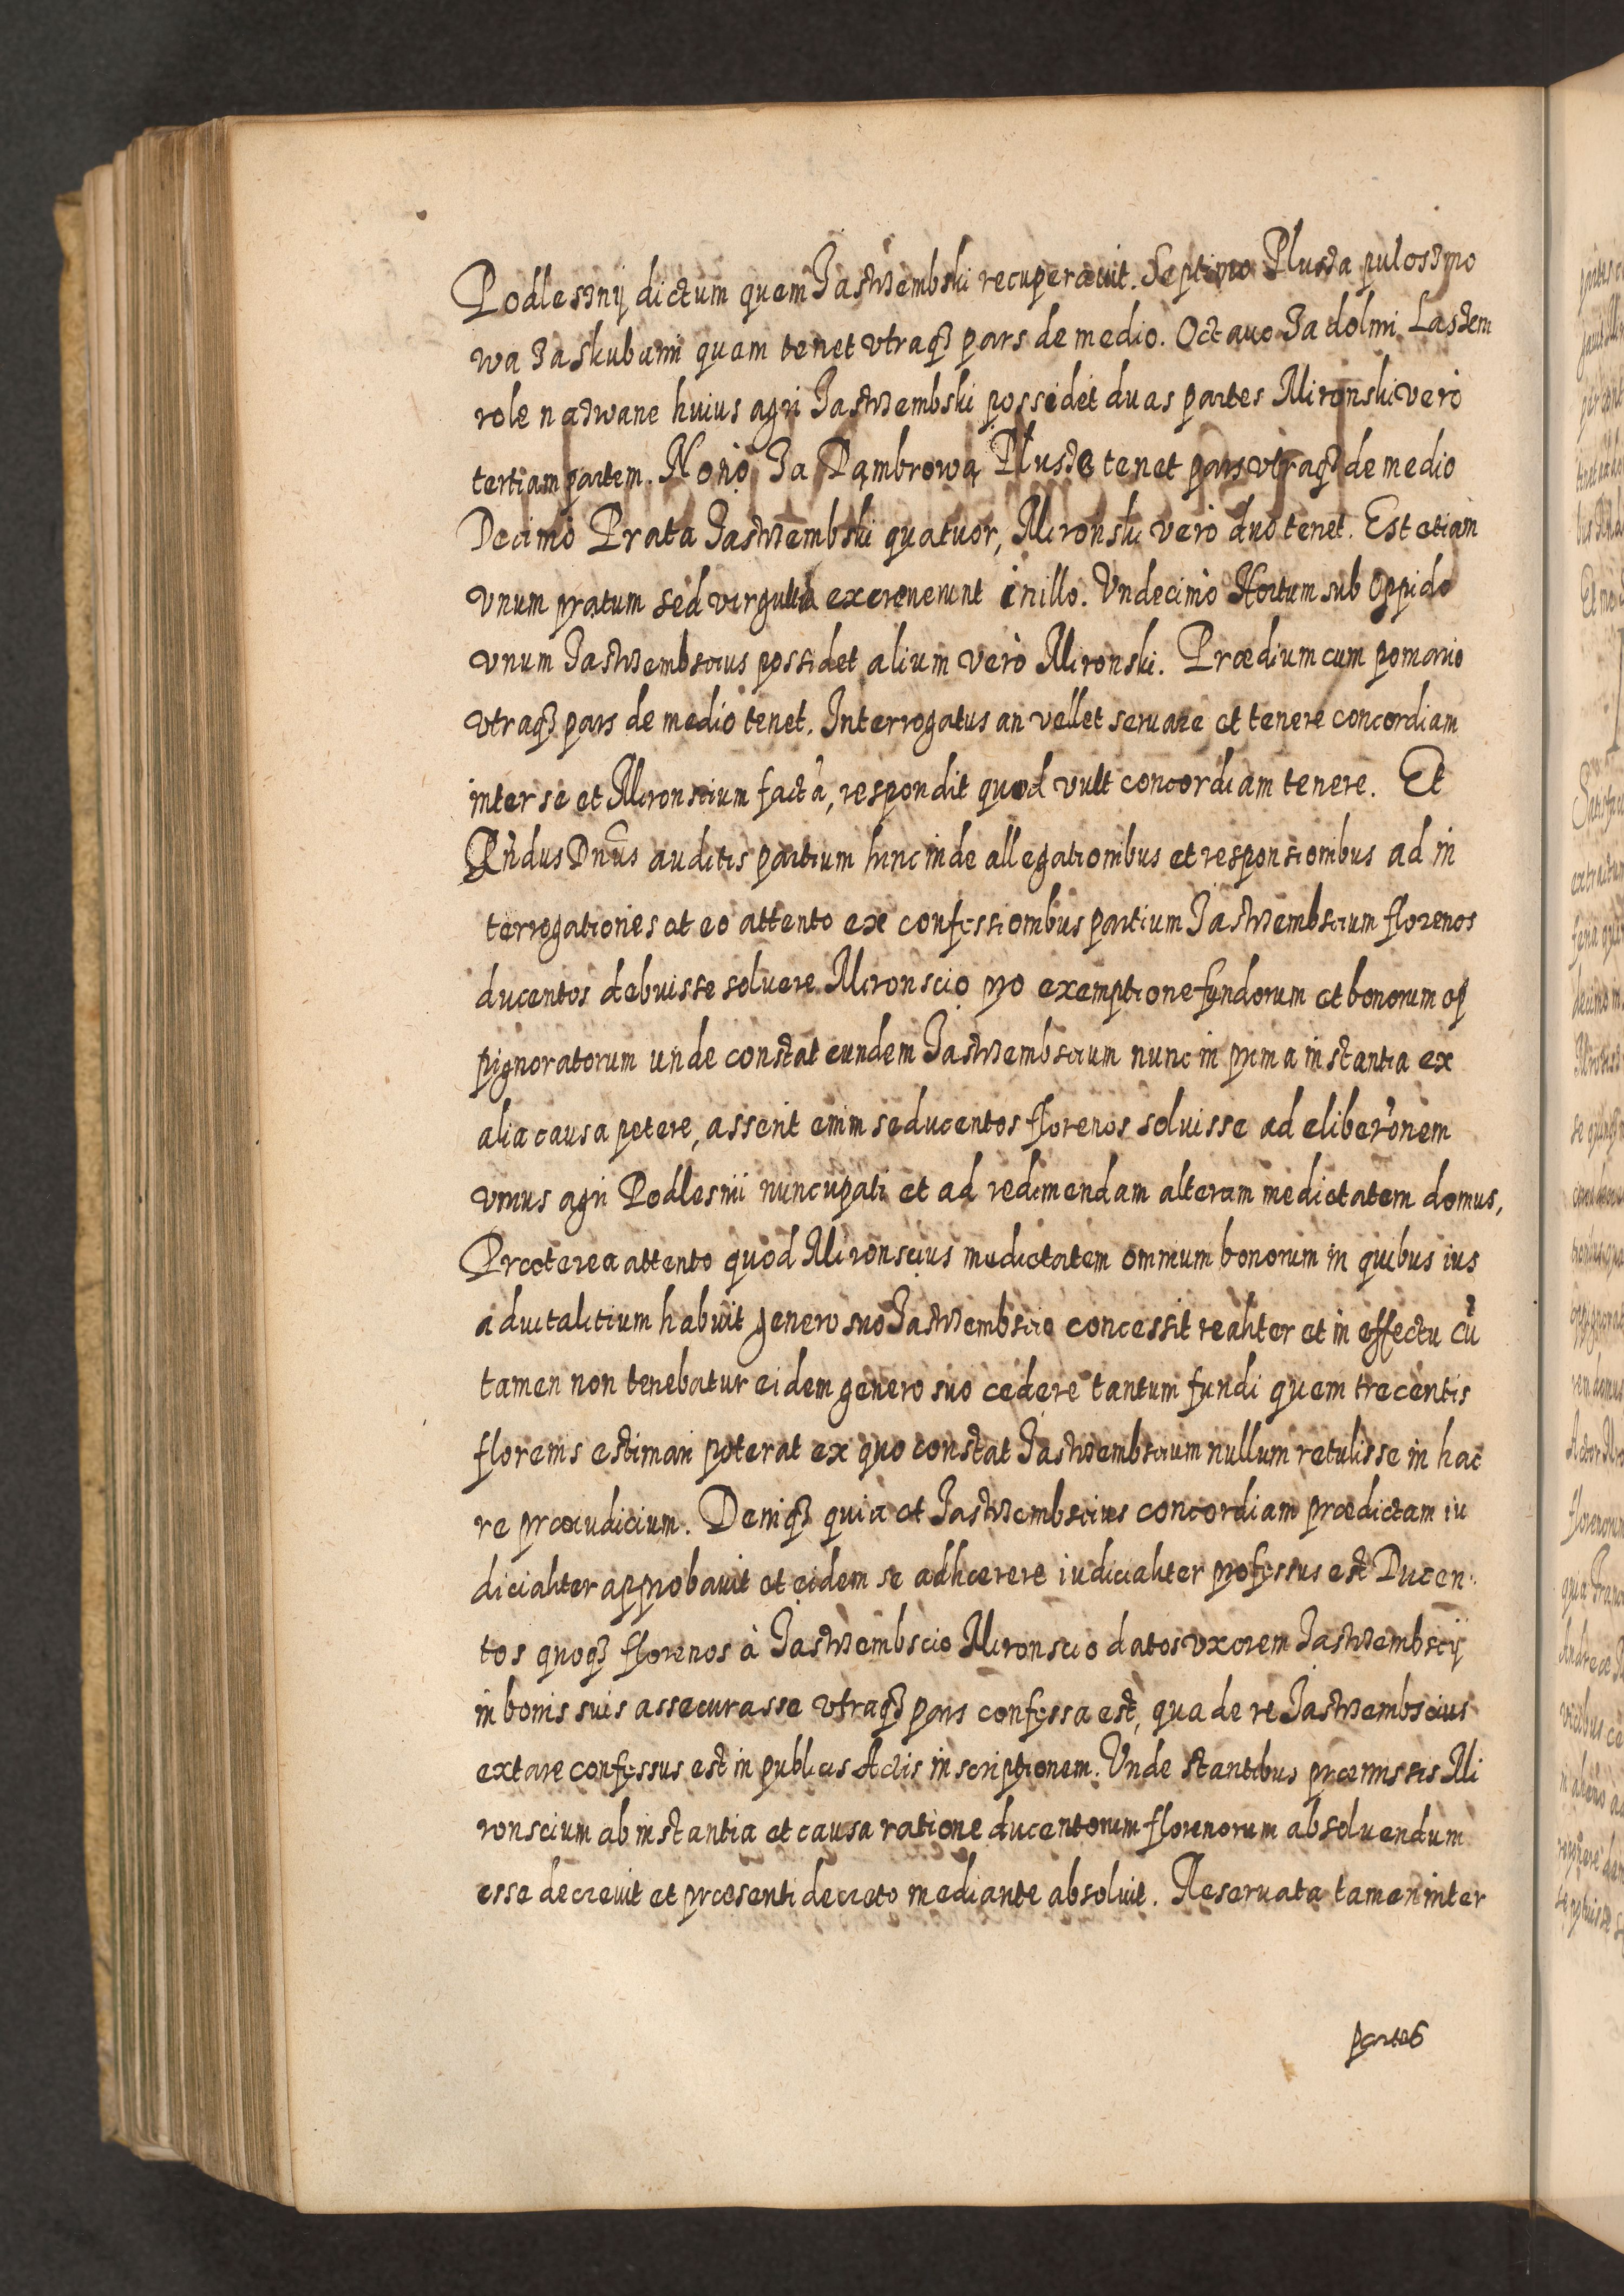 Podlesznÿ dictum quem Jastrzembski recuperauit. Septimo Plusza puloszmo
wa Za skubami quam tenet vtraqȝ pars de medio. Octauo Za dolmi Laszem
role nazwane huius agri Jastrzembski possidet duas partes Mironski verò
tertiam partem. Nonò Za Dąmbrową Plusze tenet pars vtraqȝ de medio
Decimò Prata Jastrzembski quatuor, Mironski verò duo tenet. Est etiam
vnum pratum sed virgulta excreuerunt in illo. Vndecimò Hortum sub oppido
vnum Jastrzembscius possidet alium verò Mironski. Prædium cum pomario
vtraqȝ pars de medio tenet. Interrogatus an vellet seruare et tenere concordiam
inter se et Mironscium factã, respondit quod vult concordiam tenere. Et
Rñdus Dnũs auditis partium hinc inde allegationibus et responsionibus ad in
terrogationes et eo attento ex confessionibus partium Jastrzembscium florenos
ducentos debuisse soluere Mironscio pro exemptione fundorum et bonorum op
pignoratorum unde constat eundem Jastrzembscium nunc in prima instantia ex
alia causa petere, asserit enim se ducentos florenos soluisse ad eliberõnem
vnius agri Podlesnii nuncupati et ad redimendam alteram medietatem domus,
Præterea attento quod Mironscius medietatem omnium bonorum in quibus ius
aduitalitium habuit genero suo Jastrzembscio concessit realiter et in effectu cũ
tamen non tenebatur eidem genero suo cedere tantum fundi quem trecentis
florenis estimari poterat ex quo constat Jastrzembscium nullum retulisse in hac
re præiudicium. Deniqȝ quia et Jastrzembscius concordiam prædictam iu
dicialiter approbauit et eidem se adhærere iudicialiter professus est Ducen
tos quoqȝ florenos à Jastrzembscio Mironscio datos vxorem Jastrzembscÿ
in bonis suis assecurasse vtraqȝ pars confessa est, qua de re Jastrzembscius
extare confessus est in publicis Actis inscriptionem. Vnde stantibus præmissis Mi
ronscium ab instantia et causa ratione ducentorum florenorum absoluendum
esse decreuit et præsenti decreto mediante absoluit. Reseruata tamen inter
partes